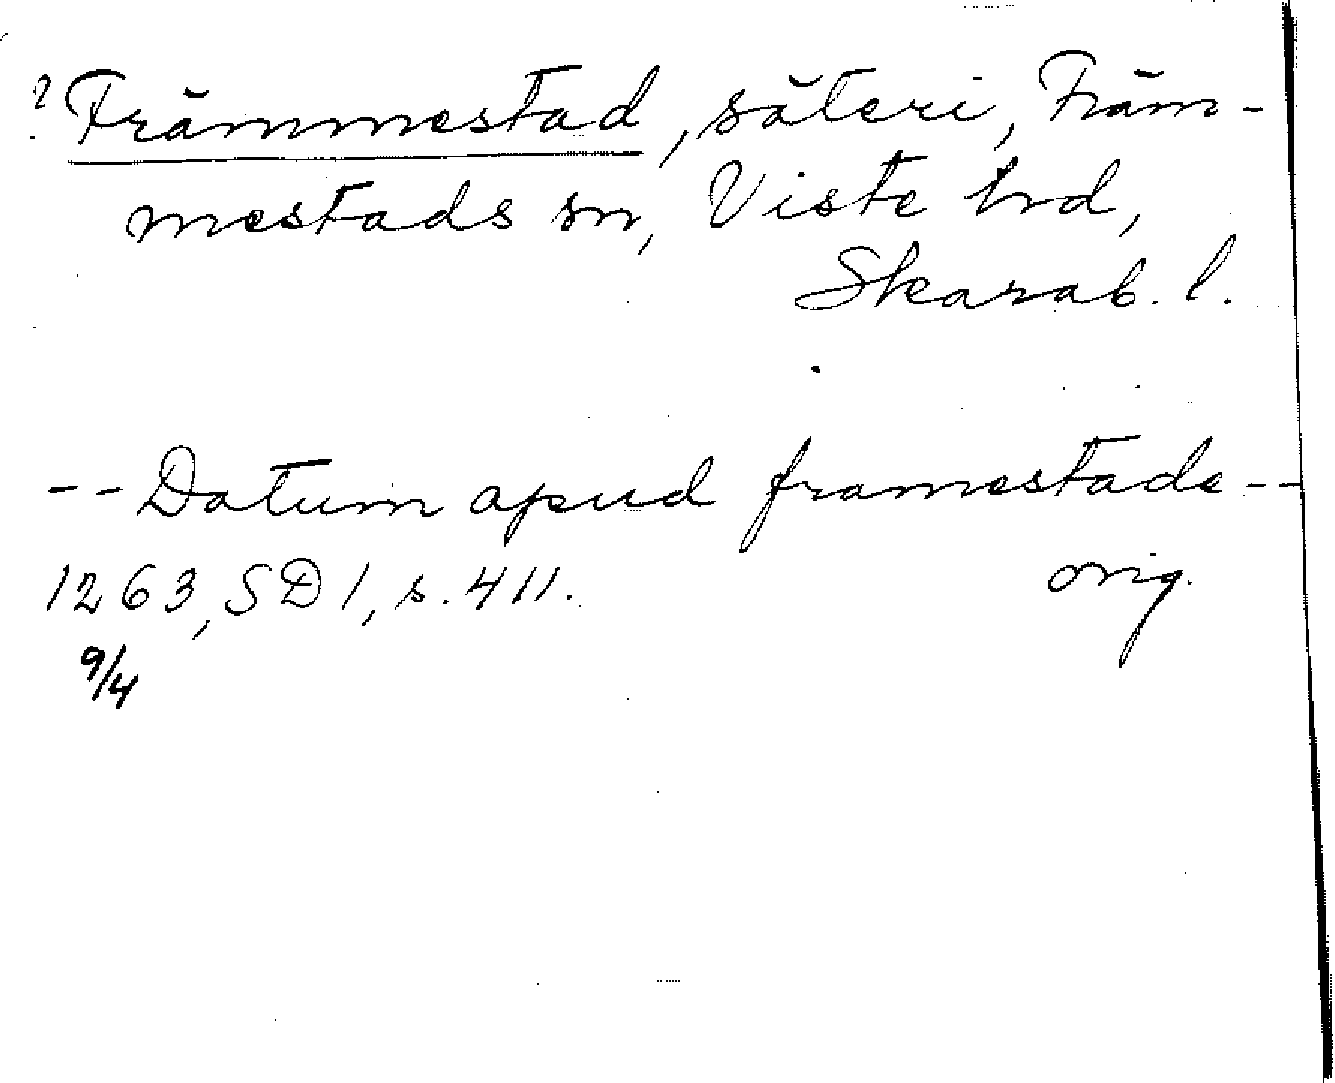 ? Främmestad, säteri, Främ-
mestads sn, Viste hrd,
Skarab. l.
-- Datum apud framestade --
1263, SD 1, s. 411. orig.
9/4